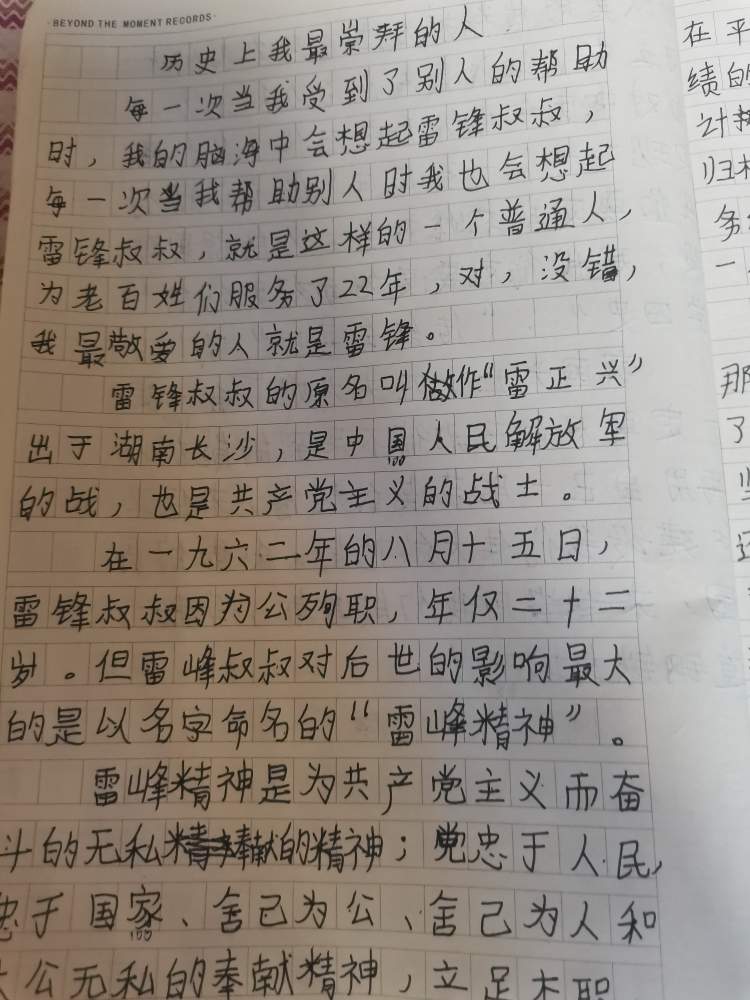 ·BEYOND THE MOMENT RECORDS·
历史上我最崇拜的人
每一次当我受到了别人的帮助
时，我的脑海中会想起雷锋叔叔，
每一次当我帮助别人时我也会想起
雷锋叔叔，就是这样的一个普通人，
为老百姓们服务了22年，对，没错，
我最敬爱的人就是雷锋。
雷锋叔叔的原名叫做作“雷正兴”
出于湖南长沙，是中国人民解放军
的战，也是共产党主义的战士。
在一九六二年的八月十五日，
雷锋叔叔因为公殉职，年仅二十二
岁。但雷峰叔叔对后世的影响最大
的是以名字命名的“雷峰精神”。
雷峰精神是为共产党主义而奋
斗的无私奉献的精神；党忠于人民，
忠于国家、舍己为公、舍己为人和
大公无私的奉献精神，立足本职
在平
绩的
计
归
务
一
那
了
坚
还